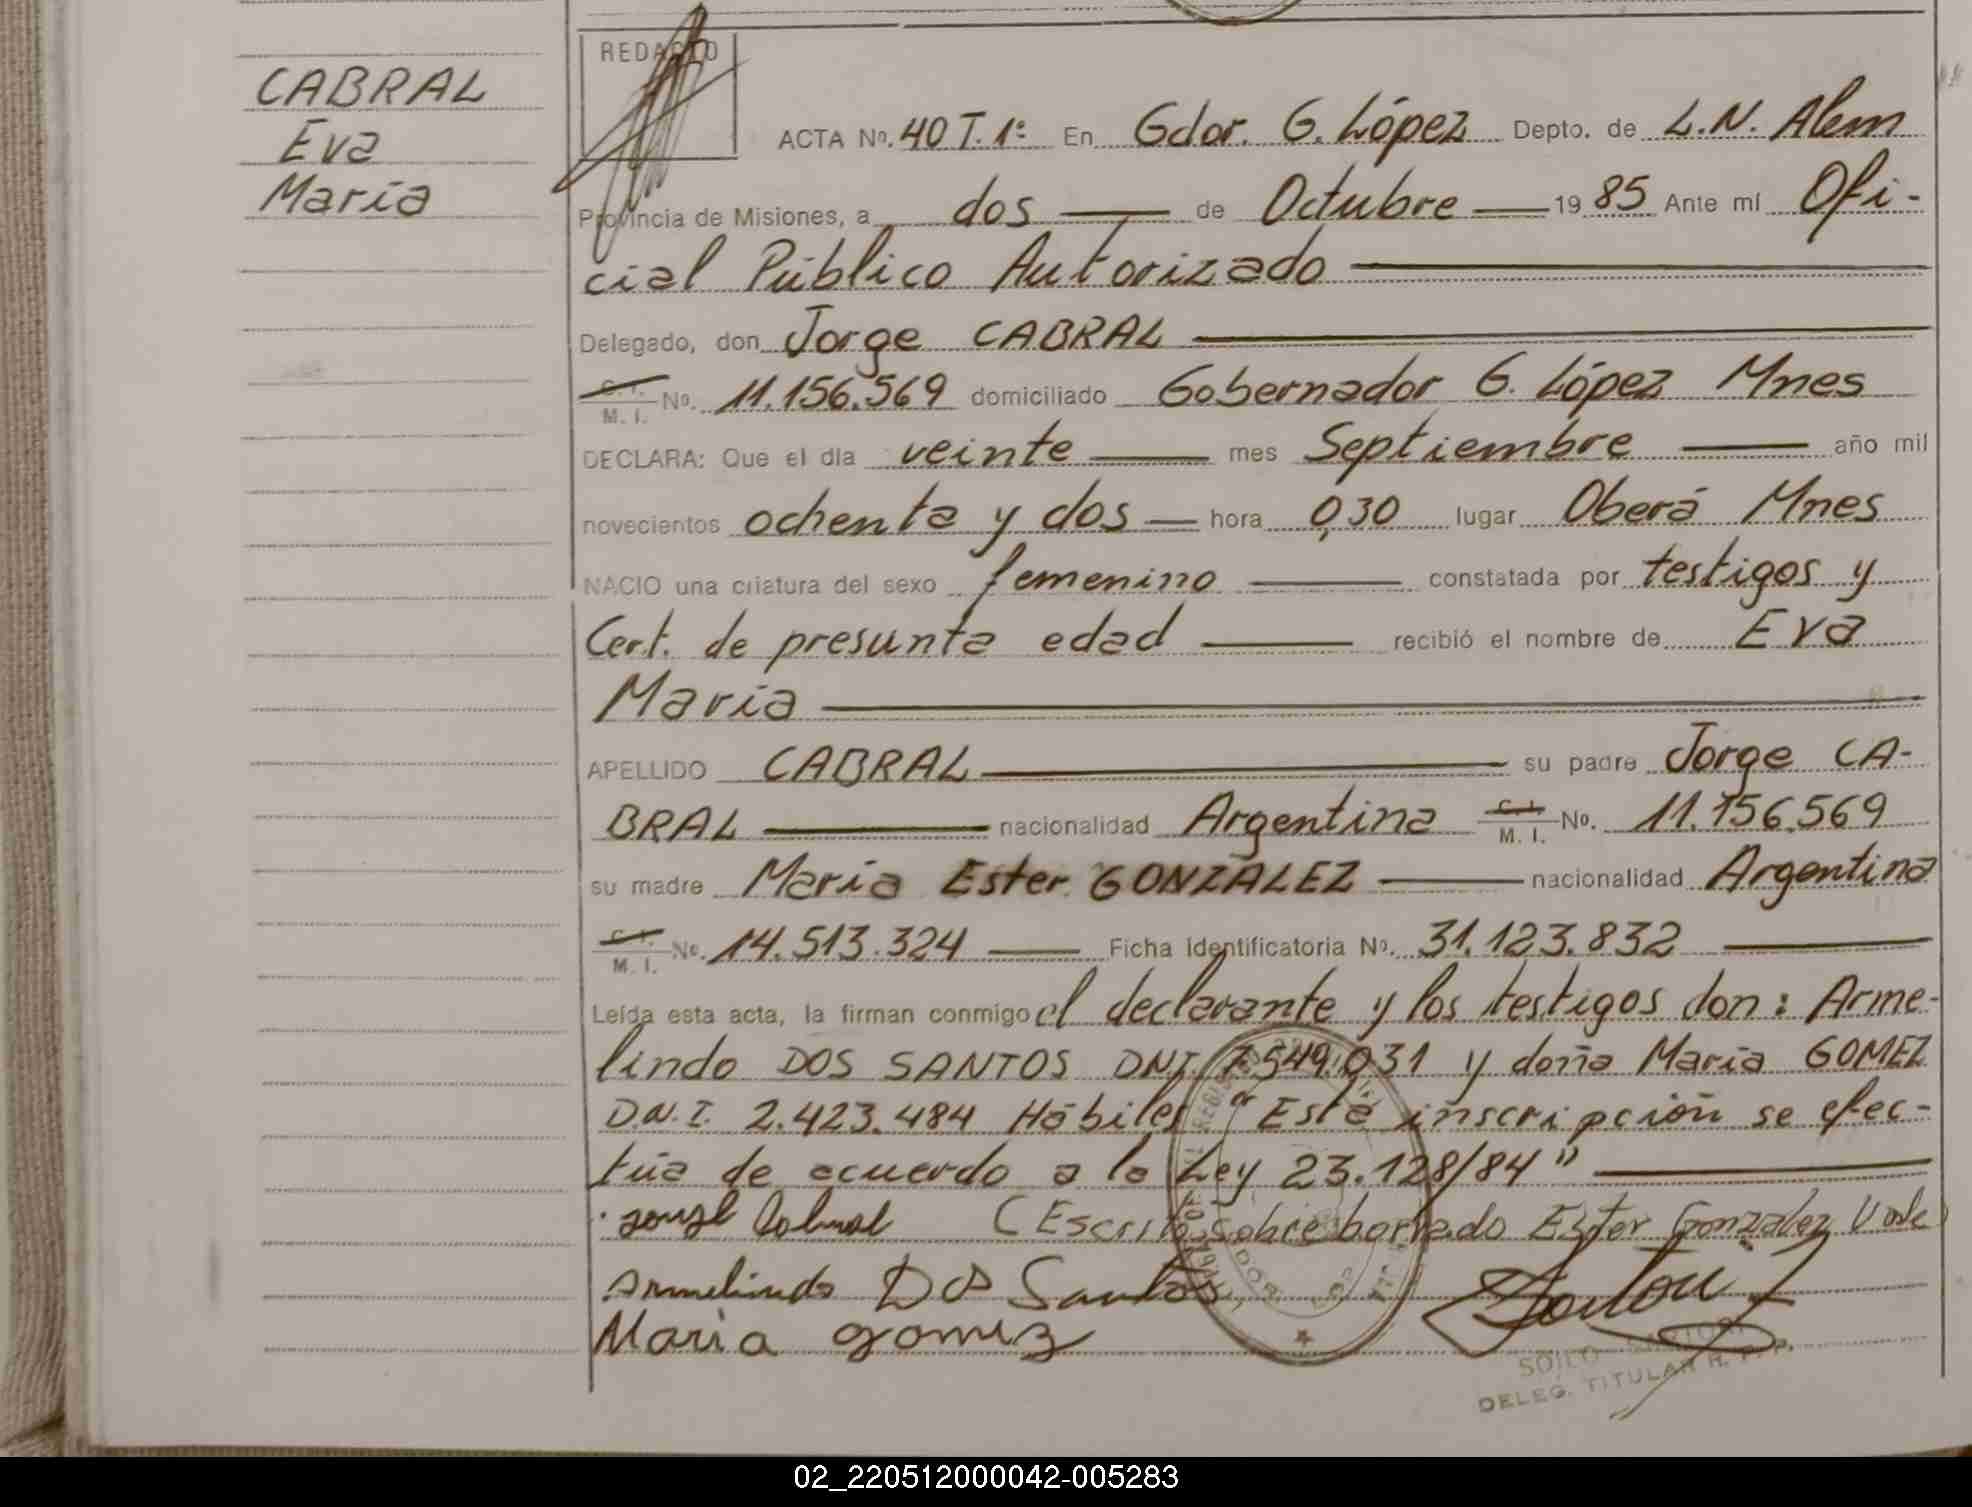 CABRAL
Eva
María
REDACTO
ACTA Nº. 40 T. 1º En Gdor. G. López Depto. de L.N. Alem
Provincia de Misiones, a dos de Octubre 19 85 Ante mí Ofi-
cial Público Autorizado
Delegado, don Jorge CABRAL
C. I. M. I. Nº. 11.156.569 domiciliado Gobernador G. López Mnes
DECLARA: Que el día veinte mes Septiembre año mil
novecientos ochenta y dos hora 0,30 lugar Oberá Mnes
NACIO una criatura del sexo femenino constatada por testigos y
Cert. de presunta edad recibió el nombre de Eva
María
APELLIDO CABRAL su padre Jorge CA-
BRAL nacionalidad Argentina C. I. M. I. Nº. 11.156.569
su madre María Ester GONZALEZ nacionalidad Argentina
C. I. M. I. Nº. 14.513.324 Ficha Identificatoria Nº. 31.123.832
Leída esta acta, la firman conmigo el declarante y los testigos don: Arme-
lindo DOS SANTOS DNI. 7.549.031 y doña María GOMEZ
D.N.I. 2.423.484 Hábiles "Esta inscripción se efec-
túa de acuerdo a la Ley 23.128/84"
Cabral (Escrito sobre borrado Ester Gonzalez Vale)
Armelindo Dos Santos
Maria gomez
SOILO
DELEG. TITULAR R. P. P.
02_220512000042-005283